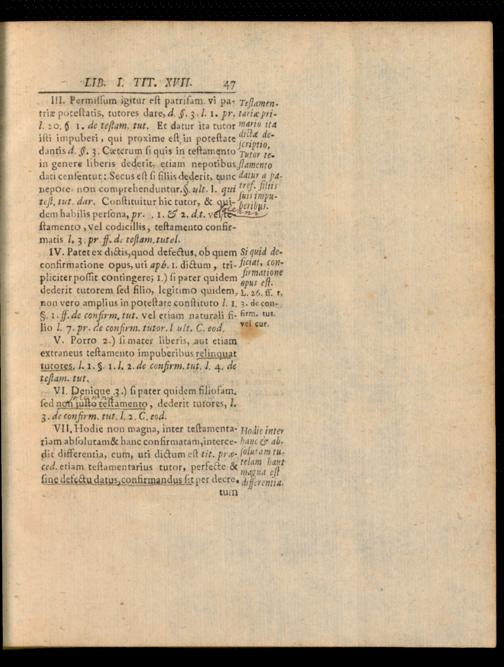 LIB. I. TIT. XVII. 47
III. Permissum igitur est patrifam. vi pa-
triæ potestatis, tutores dare, d. §. 3. l. 1. pr.
l. 20. §. 1. de testam. tut. Et datur ita tutor
isti impuberi, qui proxime est in potestate
dantis d. §. 3. Cæterum si quis in testamento
in genere liberis dederit, etiam nepotibus
dati censentur: Secus est si filiis dederit, tunc
nepotes non comprehenduntur. §. ult. I. qui
test. tut. dar. Constituitur hic tutor, & qui-
dem habilis persona, pr. . 1. & 2. d.t. vel te-
stamento, vel codicillis, testamento confir-
matis l. 3. pr. ff. de testam. tutel.
Testamen-
tariæ pri-
mario ita
dictæ de-
scriptio,
Tutor te-
stamento
datur a pa-
tref. filiis
suis impu-
beribus.
IV. Patet ex dictis, quod defectus, ob quem
confirmatione opus, uti aph. 1. dictum, tri-
pliciter possit contingere; 1.) si pater quidem
dederit tutorem sed filio, legitimo quidem,
non vero amplius in potestate constituto l. 1.
§. 1. ff. de confirm. tut. vel etiam naturali fi-
lio l. 7. pr. de confirm. tutor. l ult. C. eod.
Si quid de-
ficiat, con-
firmatione
opus est.
L. 26. ff. t.
3. de con-
firm. tut.
vel cur.
V. Porro 2.) si mater liberis, aut etiam
extraneus testamento impuberibus relinquat
tutores. l. 1. §. 1. l. 2. de confirm. tut. l. 4. de
testam. tut.
VI. Denique 3.) si pater quidem filiofam.
sed non justo testamento, dederit tutores, l.
3. de confirm. tut. l. 2. C. eod.
VII, Hodie non magna, inter testamenta-
riam absolutam & hanc confirmatam, interce-
dit differentia, cum, uti dictum est tit. præ-
ced. etiam testamentarius tutor, perfecte &
sine defectu datus, confirmandus sit per decre-
tum
Hodie inter
hanc & ab-
solutam tu-
telam haut
magna est
differentia.